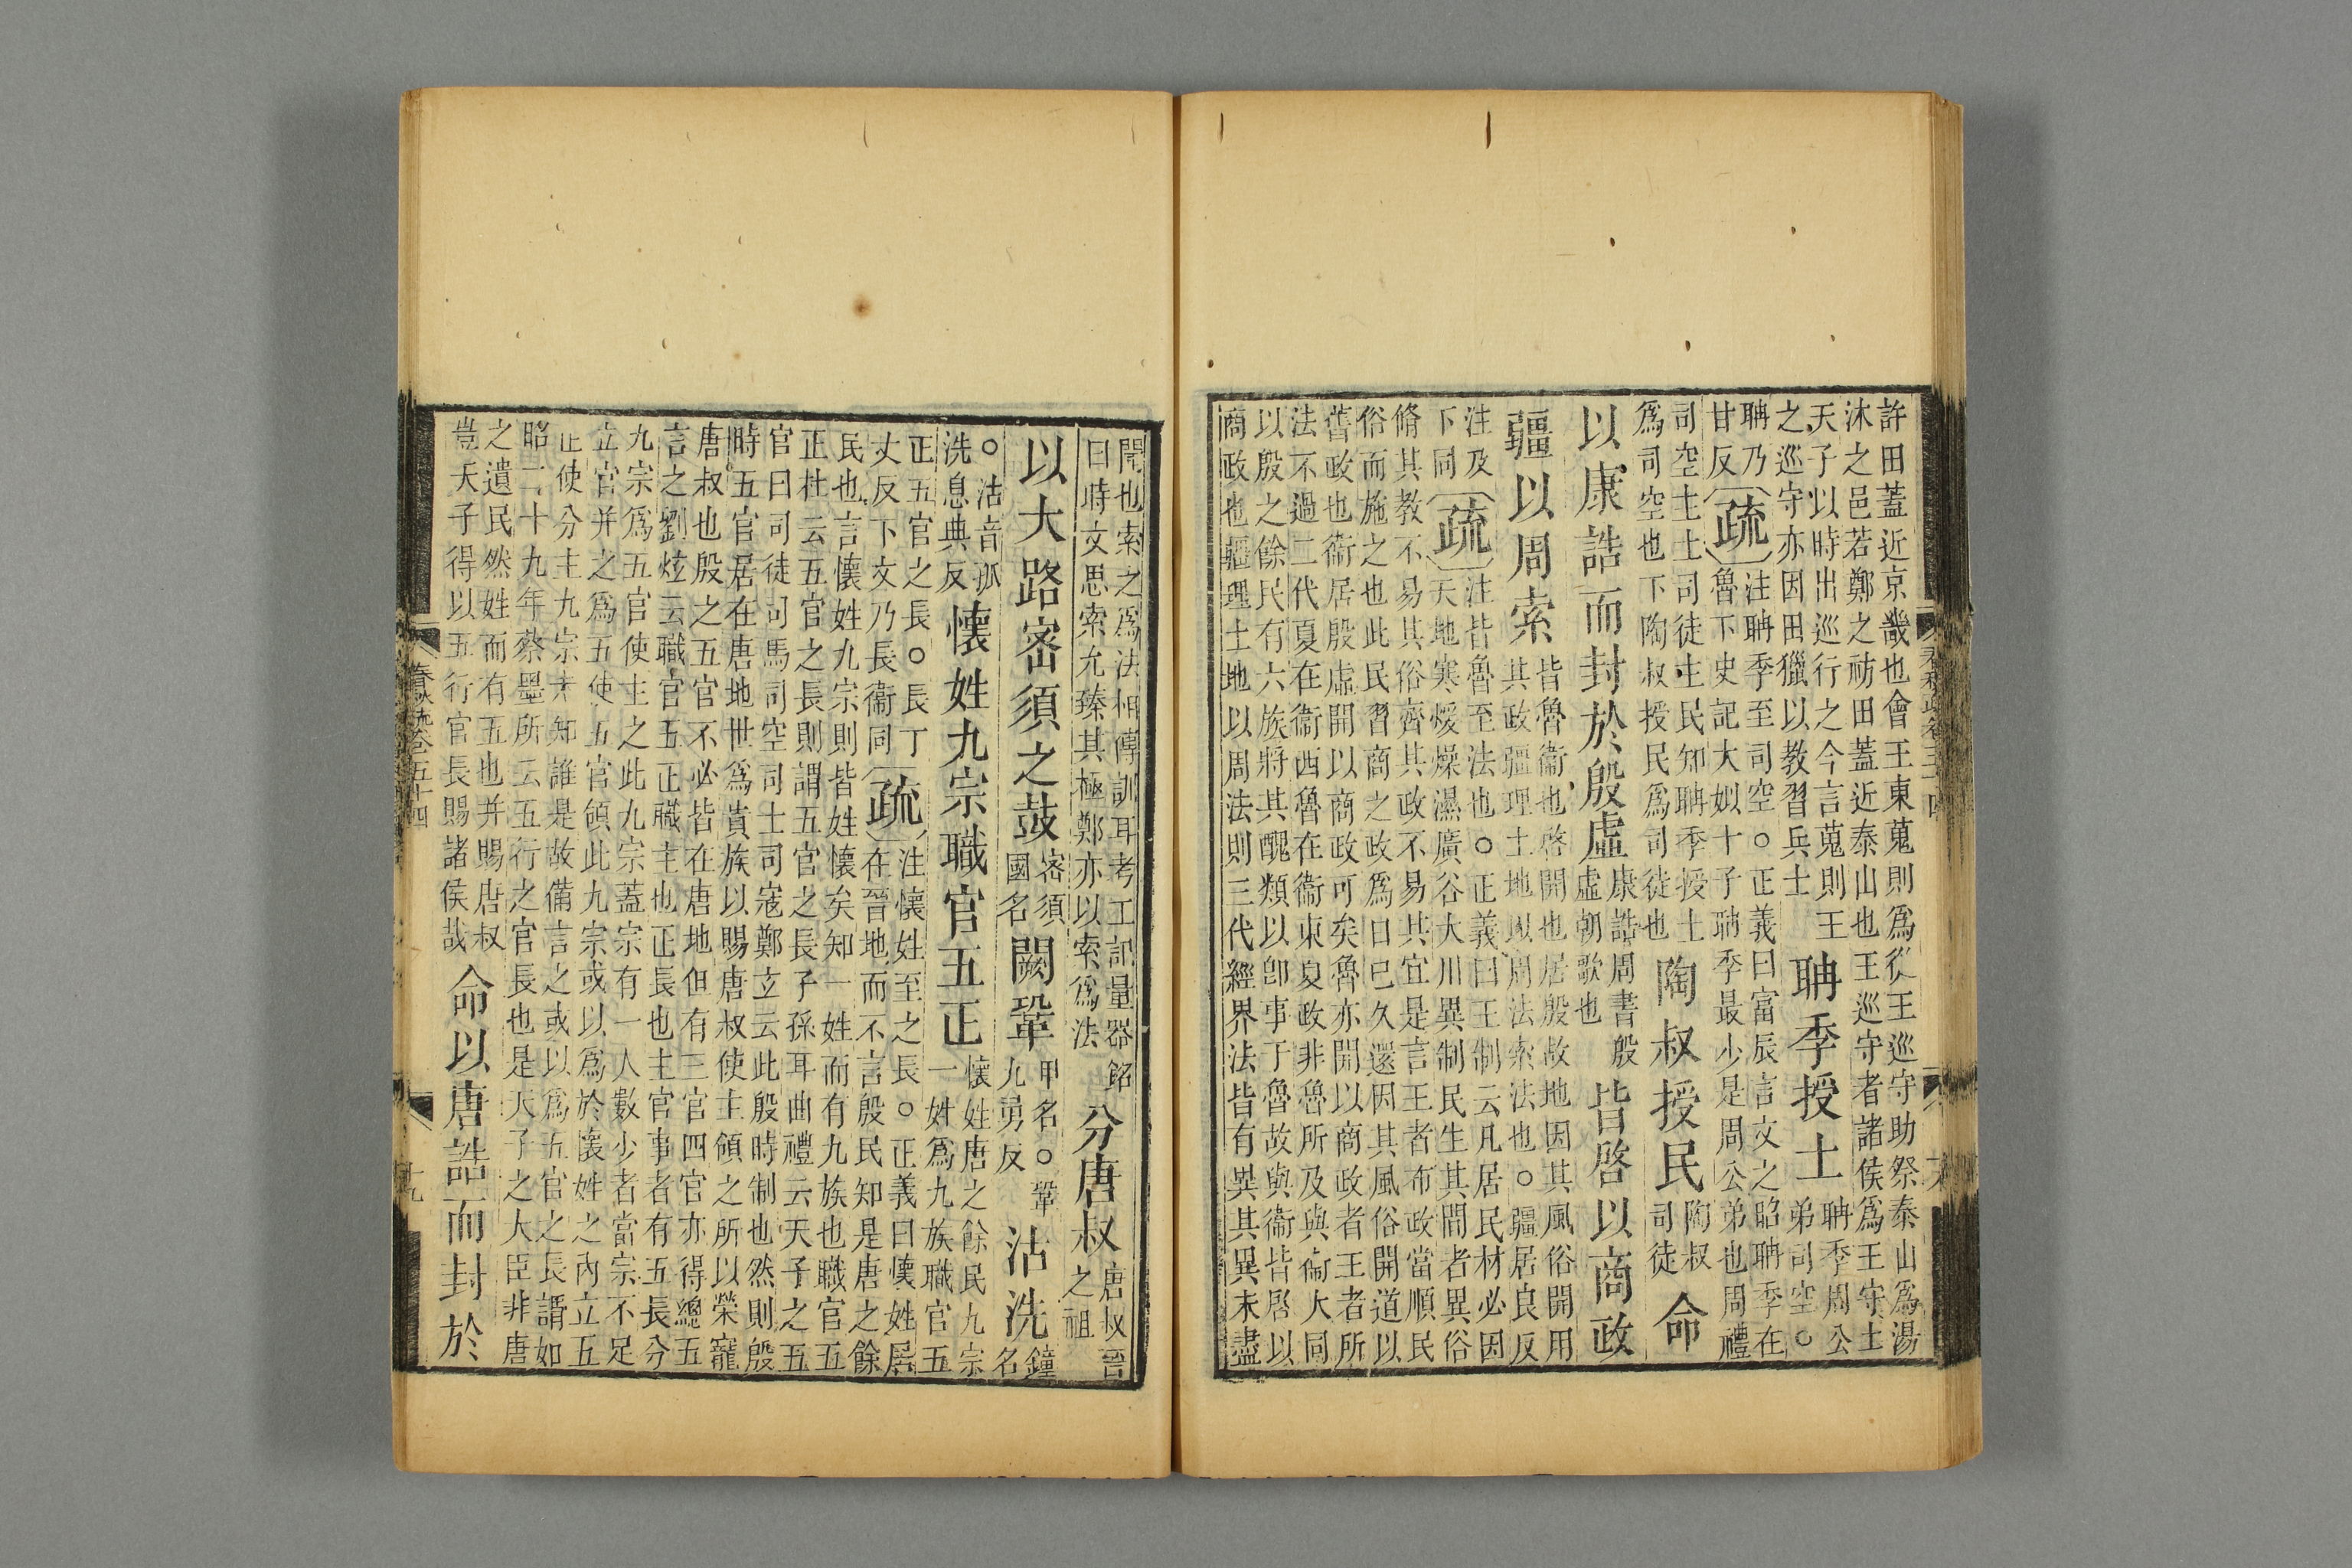 許田蓋近京畿也會王東蒐則爲從王巡守助祭泰山爲湯
沐之邑若鄭之祊田蓋近泰山也王巡守者諸侯爲王守土
天子以時出巡行之今言蒐則王
之巡守亦因田獵以教習兵士
聃季授土
聃季周公
弟司空○
聃乃
甘反
疏
注聃季至司空○正義曰富辰言文之昭聃季在
魯下史記大姒十子聃季最少是周公弟也周禮
司空主土司徒主民知聃季授土
爲司空也下陶叔授民爲司徒也
陶叔授民
陶叔
司徒
命
以康誥而封於殷虛
康誥周書殷
虛朝歌也
皆啓以商政
疆以周索
皆魯衞也啓開也居殷故地因其風俗開用
其政疆理土地以周法索法也○疆居良反
注及
下同
疏
注皆魯至法也○正義曰王制云凡居民材必因
天地寒煖燥濕廣谷大川異制民生其間者異俗
脩其教不易其俗齊其政不易其宜是言王者布政當順民
俗而施之也此民習商之政爲日已久還因其風俗開道以
舊政也衞居殷虛開以商政可矣魯亦開以商政者王者所
法不過二代夏在衞西魯在衞東夏政非魯所及與衞大同
以殷之餘民有六族將其醜類以卽事于魯故與衞皆啓以
商政也疆理土地以周法則三代經界法皆有異其異未盡
聞也索之爲法相傳訓耳考工記量器銘
曰時文思索允臻其極鄭亦以索爲法
分唐叔
唐叔晉
之祖
以大路密須之鼓
密須
國名
闕鞏
甲名○鞏
九勇反
沽洗
鐘
名
○沽音孤
洗息典反
懷姓九宗職官五正
懷姓唐之餘民九宗
一姓爲九族職官五
正五官之長○長丁
丈反下文乃長衞同
疏
注懷姓至之長○正義曰懷姓居
在晉地而不言殷民知是唐之餘
民也言懷姓九宗則皆姓懷矣知一姓而有九族也職官五
正杜云五官之長則謂五官之長子孫耳曲禮云天子之五
官曰司徒司馬司空司士司寇鄭立云此殷時制也然則殷
時五官居在唐地世爲貴族以賜唐叔使主領之所以榮寵
唐叔也殷之五官不必皆在唐地但有三官四官亦得總五
言之劉炫云職官五正職主也正長也主官事者有五長分
九宗爲五官使主之此九宗蓋宗有一人數少者當宗不足
立官并之爲五使五官領此九宗或以爲於懷姓之內立五
正使分主九宗未知誰是故備言之或以爲五官之長謂如
昭二十九年蔡墨所云五行之官長也是天子之大臣非唐
之遺民然姓而有五也并賜唐叔
豈天子得以五行官長賜諸侯哉
命以唐誥而封於
春秋疏卷五十四
十九